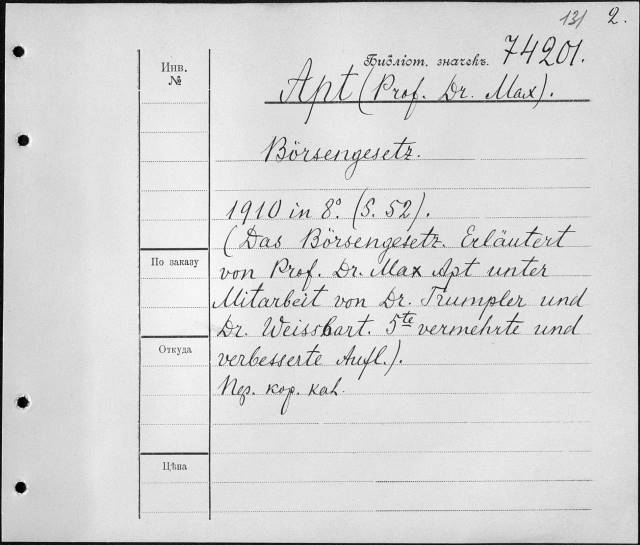 131 2.
Библіот. значекъ. 74201.
Инв.
№
Apt (Prof. Dr. Max).
Börsengesetz.
1910 in 8º. (S. 52).
(Das Börsengesetz. Erläutert
По заказу
von Prof. Dr. Max Apt unter
Mitarbeit von Dr. Trumpler und
Dr. Weissbart. 5te vermehrte und
Откуда
verbesserte Aufl.).
кор. кат.
Цѣна